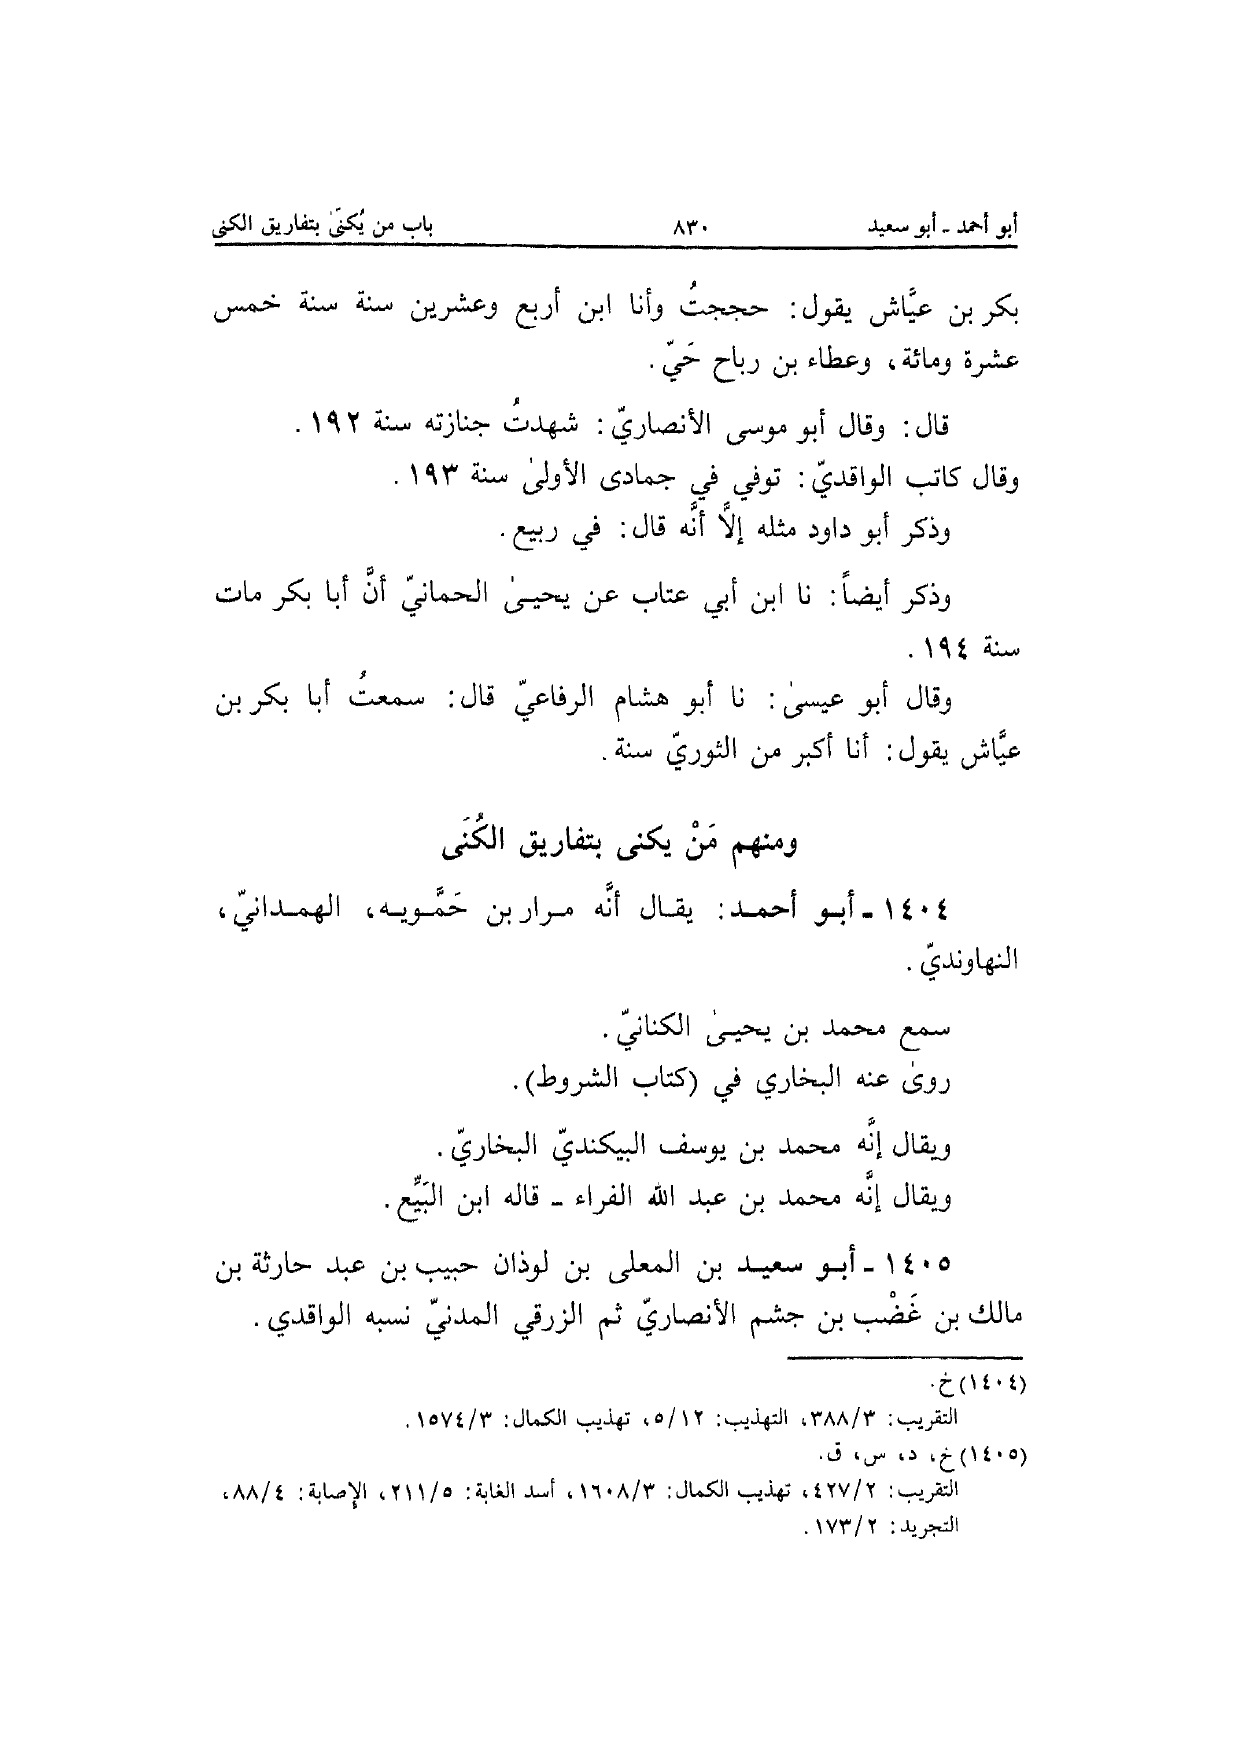 أبو أحمد ـ أبو سعيد ٨٣٠ باب من يُكنىٰ بتفاريق الكنى
بكر بن عيَّاش يقول: حججتُ وأنا ابن أربع وعشرين سنة سنة خمس
عشرة ومائة، وعطاء بن رباح حَيّ.
قال: وقال أبو موسى الأنصاريّ: شهدتُ جنازته سنة ١٩٢.
وقال كاتب الواقديّ: توفي في جمادى الأولىٰ سنة ١٩٣.
وذكر أبو داود مثله إلاَّ أنَّه قال: في ربيع.
وذكر أيضاً: نا ابن أبي عتاب عن يحيىٰ الحمانيّ أنَّ أبا بكر مات
سنة ١٩٤.
وقال أبو عيسىٰ: نا أبو هشام الرفاعيّ قال: سمعتُ أبا بكر بن
عيَّاش يقول: أنا أكبر من الثوريّ سنة.
ومنهم مَنْ يكنى بتفاريق الكُنَى
١٤٠٤ ـ أبو أحمد: يقال أنَّه مرار بن حَمَّويه، الهمدانيّ،
النهاونديّ.
سمع محمد بن يحيىٰ الكنانيّ.
روىٰ عنه البخاري في (كتاب الشروط).
ويقال إنَّه محمد بن يوسف البيكنديّ البخاريّ.
ويقال إنَّه محمد بن عبد الله الفراء ـ قاله ابن البَيِّع.
١٤٠٥ ـ أبو سعيد بن المعلى بن لوذان حبيب بن عبد حارثة بن
مالك بن غَضْب بن جشم الأنصاريّ ثم الزرقي المدنيّ نسبه الواقدي.
(١٤٠٤) خ.
التقريب: ٣/٣٨٨، التهذيب: ١٢/٥، تهذيب الكمال: ٣/١٥٧٤.
(١٤٠٥) خ، د، س، ق.
التقريب: ٢/٤٢٧، تهذيب الكمال: ٣/١٦٠٨، أسد الغابة: ٥/٢١١، الإصابة: ٤/٨٨،
التجريد: ٢/١٧٣.